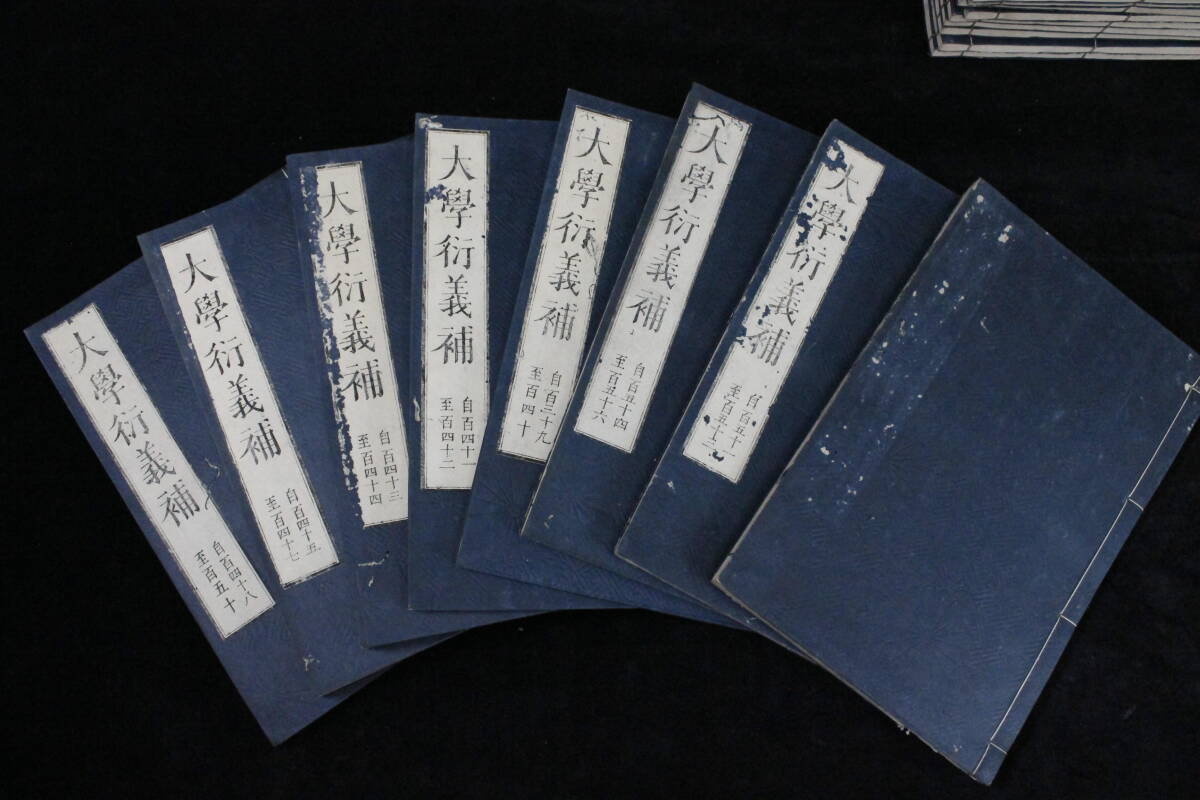 大學衍義補
自百四十八
至百五十
大學衍義補
自百四十五
至百四十七
大學衍義補
自百四十三
至百四十四
大學衍義補
自百四十一
至百四十二
大學衍義補
自百三十九
至百四十
大學衍義補
自百五十四
至百五十六
大學衍義補
自百五十一
至百五十三